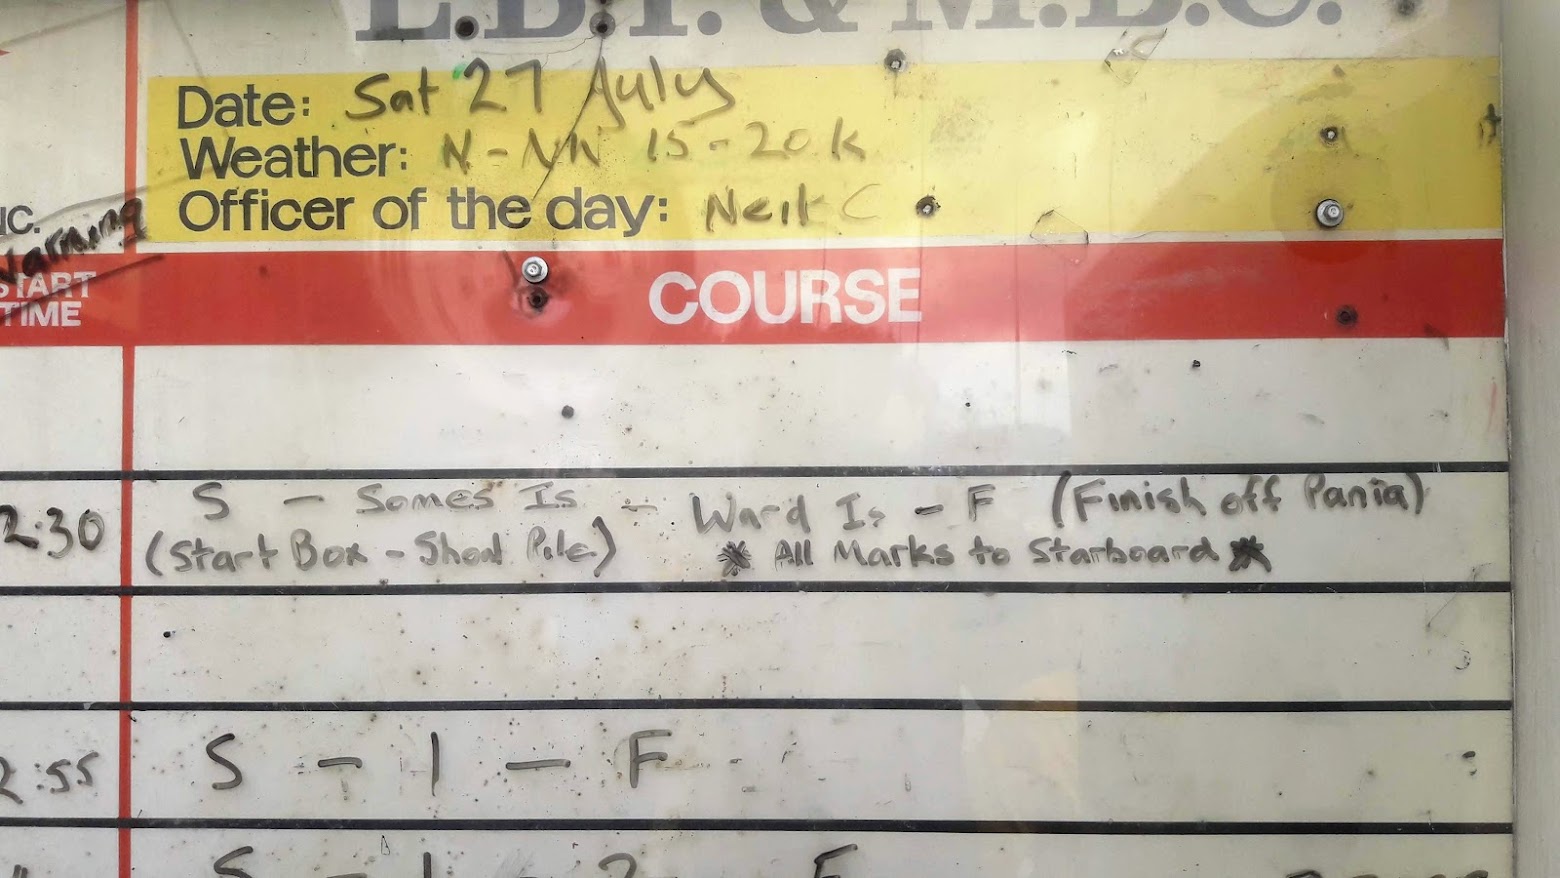 E.B.Y. & M.B.C.
Date: Sat 27 July
Weather: N-NW 15-20k
Officer of the day: Neil C
UC.
Warning
START
TIME
COURSE
2:30
S - Somes Is - Ward Is - F (Finish off Pania)
(Start Box - Shoal Pile) * All Marks to Starboard *
2:55
S - 1 - F
S - 1 - 2 - F